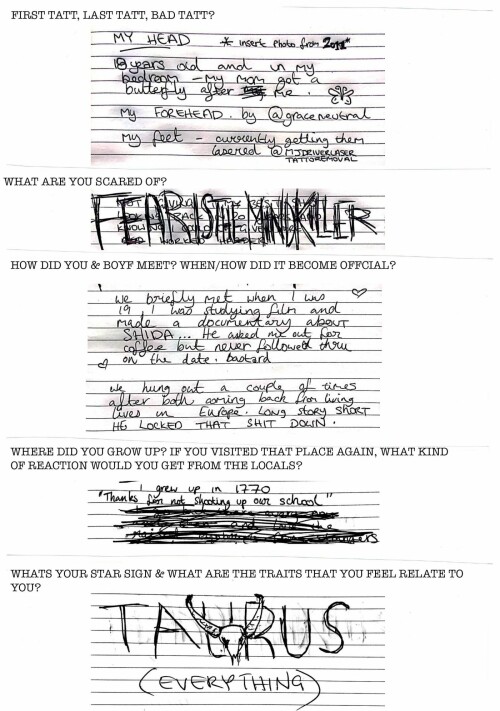 FIRST TATT, LAST TATT, BAD TATT?
MY HEAD * insert photo from 2011*
18 years old and in my
bedroom - my mom got a
butterfly after me.
My FOREHEAD. by @graceneutral
My feet - currently getting them
lasered @MJDRIVERLASER
TATTOOREMOVAL
WHAT ARE YOU SCARED OF?
FEAR IS THE MINDKILLER
HOW DID YOU & BOYF MEET? WHEN/HOW DID IT BECOME OFFCIAL?
we briefly met when I was
19, I was studying film and
made a documentary about
SHIDA... He asked me out for
coffee but never followed thru
on the date. bastard
we hung out a couple of times
after both coming back from living
lives in Europe. LONG STORY SHORT
HE LOCKED THAT SHIT DOWN.
WHERE DID YOU GROW UP? IF YOU VISITED THAT PLACE AGAIN, WHAT KIND
OF REACTION WOULD YOU GET FROM THE LOCALS?
I grew up in 1770
"Thanks for not shooting up our school"
WHATS YOUR STAR SIGN & WHAT ARE THE TRAITS THAT YOU FEEL RELATE TO
YOU?
TAURUS
(EVERYTHING)